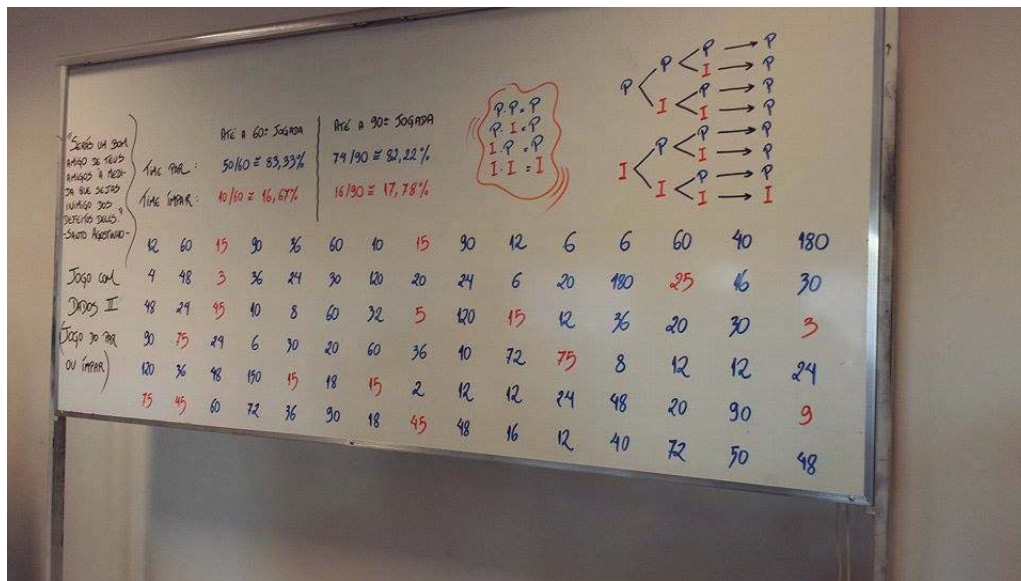 "SERÁS UM BOM
AMIGO DE TEUS
AMIGOS À MEDI-
DA QUE SEJAS
INIMIGO DOS
DEFEITOS DELES."
-SANTO AGOSTINHO-
ATÉ A 60ª JOGADA
ATÉ A 90ª JOGADA
TIME PAR: 50/60 ≅ 83,33% 74/90 ≅ 82,22%
TIME ÍMPAR: 10/60 ≅ 16,67% 16/90 ≅ 17,78%
P·P=P
P·I=P
I·P=P
I·I=I
P P P → P
I → P
I P → P
I → P
I P P → P
I → P
I P → P
I → I
JOGO COM
DADOS II
(JOGO DO PAR
OU ÍMPAR)
12 60 15 90 36 60 10 15 90 12 6 6 60 40 180
4 48 3 36 24 30 120 20 24 6 20 180 25 16 30
48 24 45 10 8 60 32 5 120 15 12 36 20 30 3
90 75 24 6 30 20 60 36 10 72 75 8 12 12 24
120 36 48 150 15 18 15 2 12 12 24 48 20 90 9
75 45 60 72 36 90 18 45 48 16 12 40 72 50 48